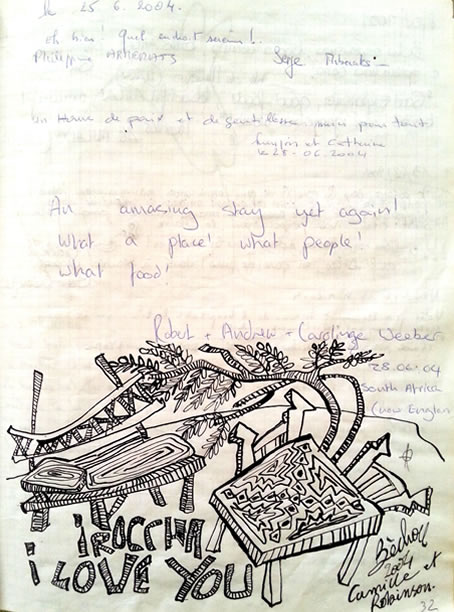 le 25.6.2004.
oh bien! Quel endroit serein!..
Philippine Serge
un Havre de paix et de gentillesse merci pour tout
et Catherine
le 28.06.2004
An amazing stay yet again!
What a place! what people!
what food!
Robert + Andrew + Caroline Weeber
28.06.04
South Africa
(now England
IROCCHA
I LOVE YOU
2004
Camille et
Robinson.
32